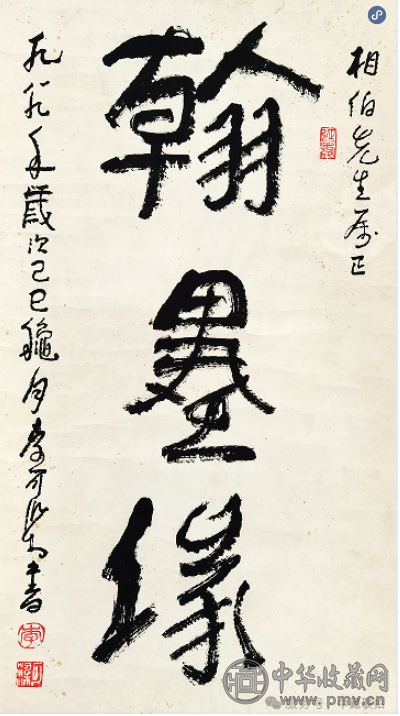 相伯先生属正
翰墨緣
一九八九年歲次己巳龝月李可染書
李
可染
中华收藏网
www.pmv.cn